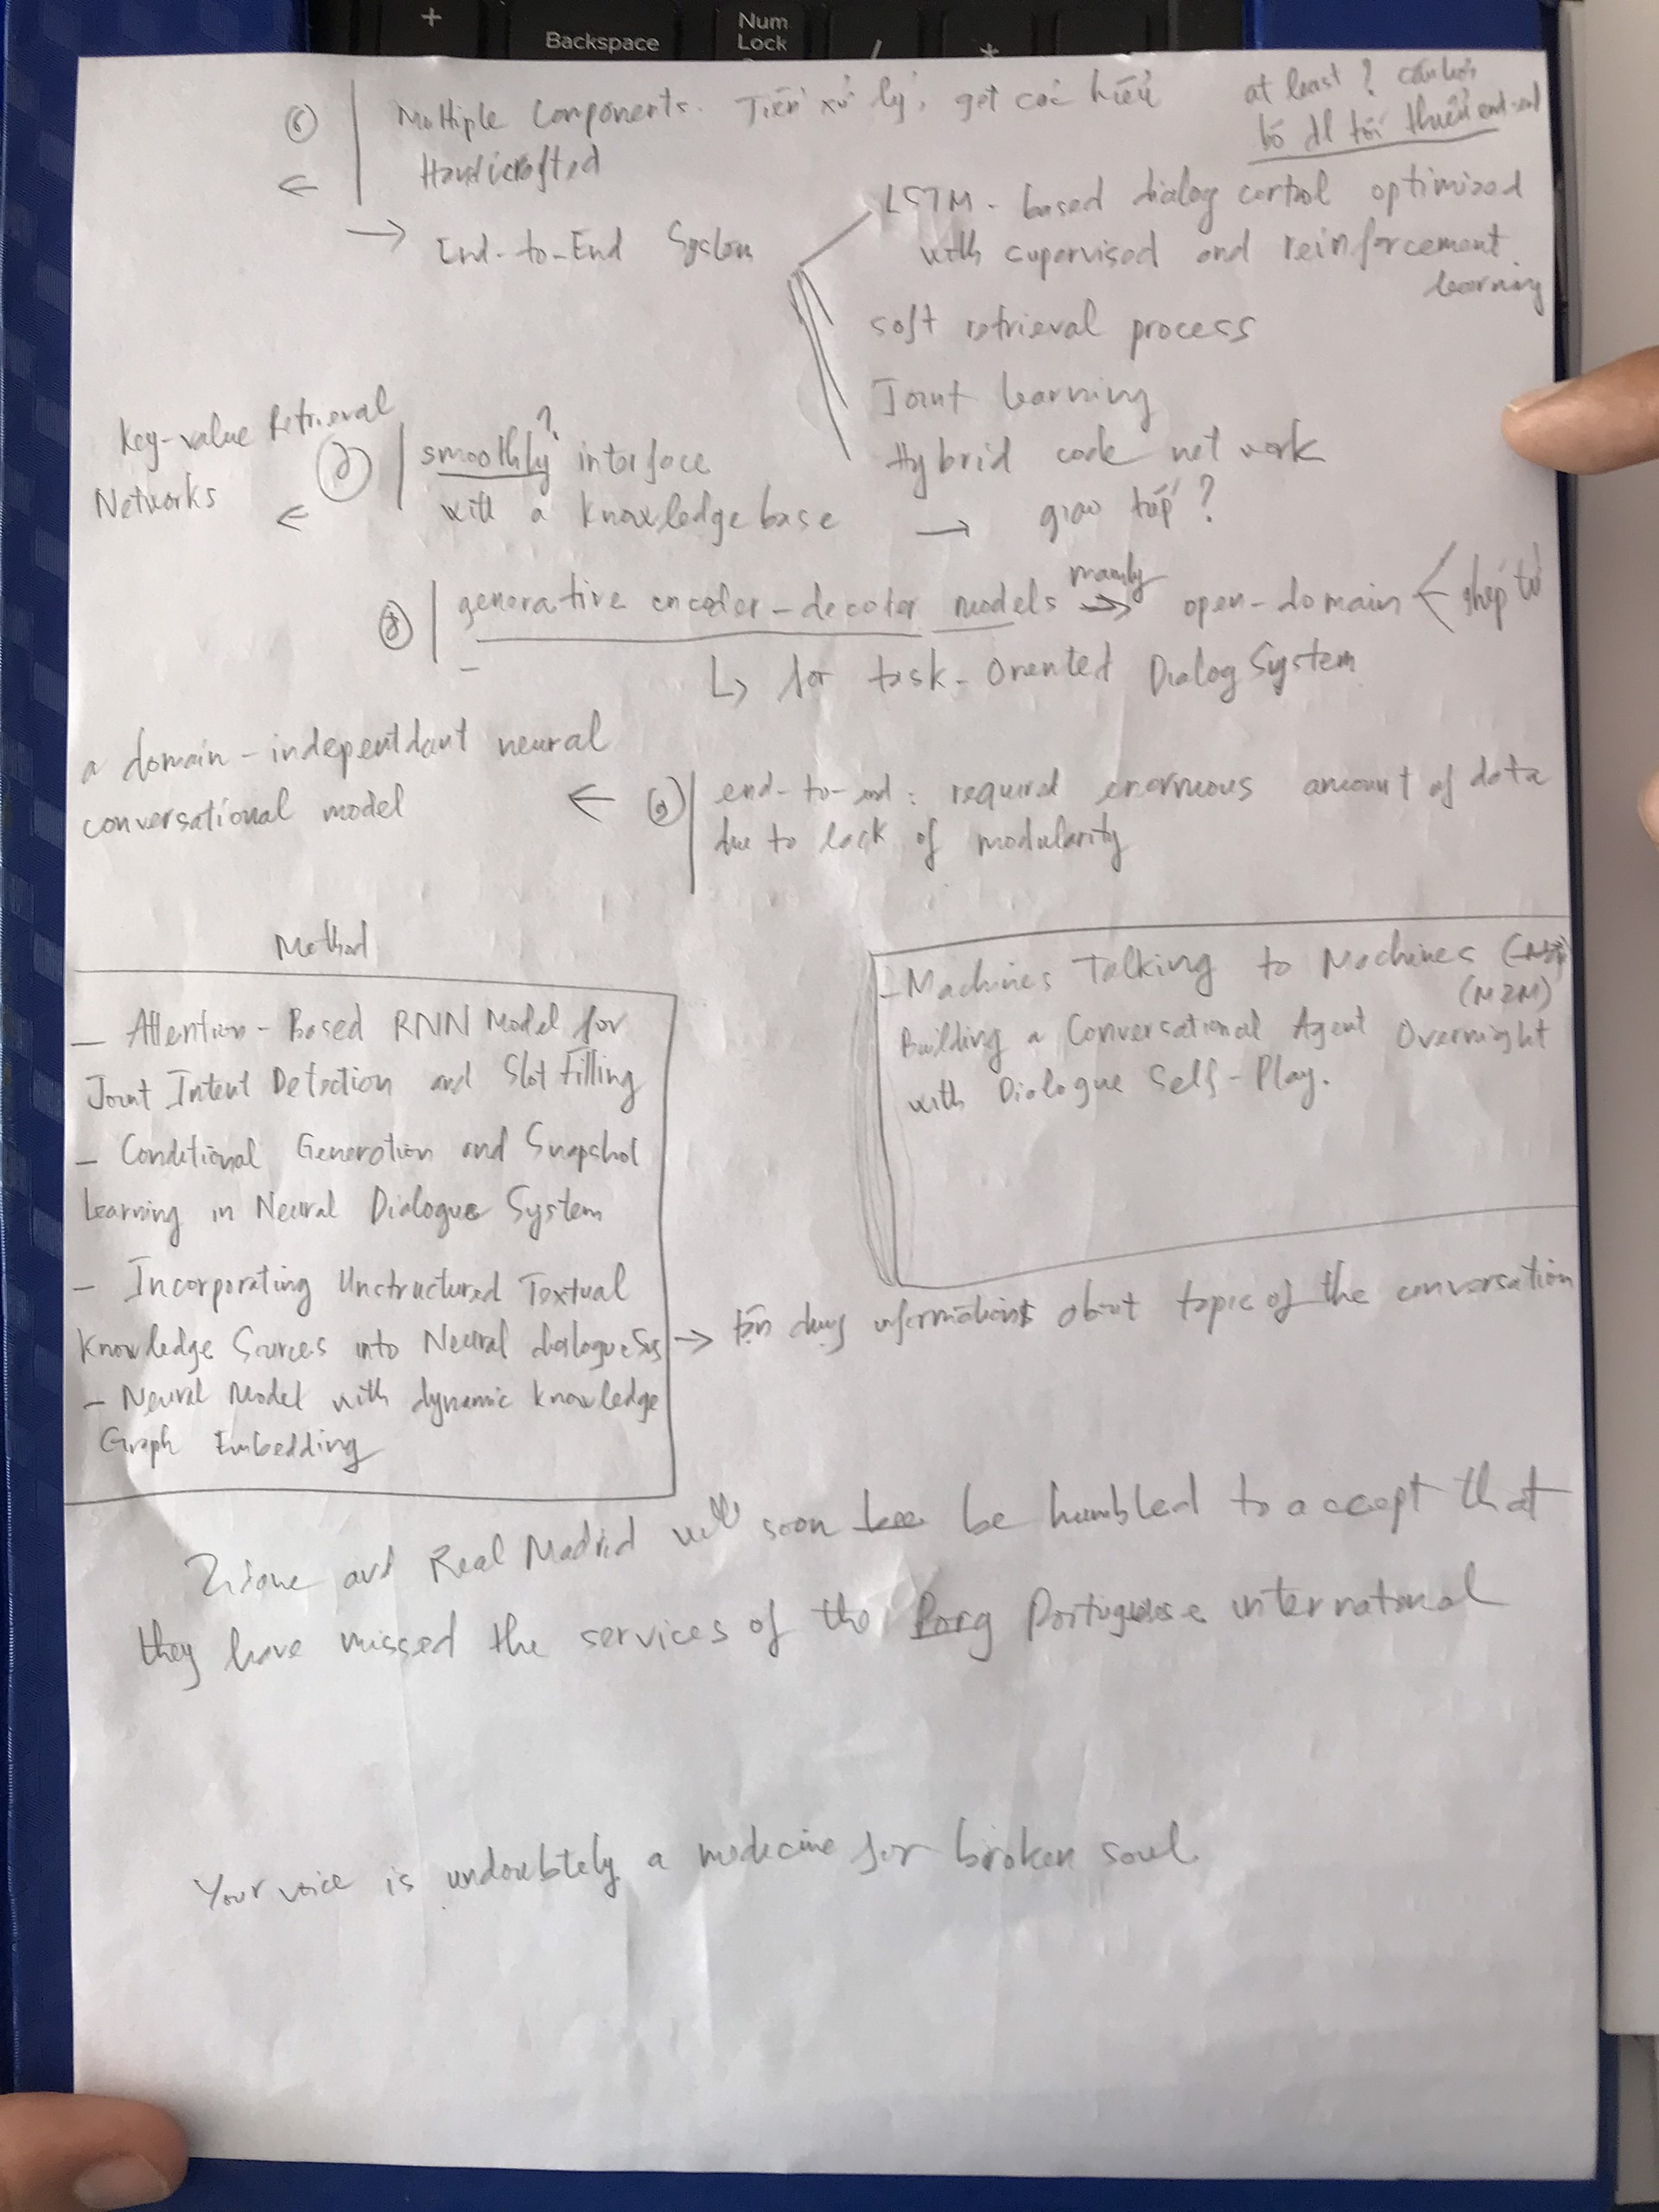 +
Backspace
Num
Lock
/
*
6 Multiple Components. Tiền xử lý, get các kiểu
Handicrafted
at least ? câu hỏi
bộ dl tối thiểu end-end
← → End-to-End System
LSTM - based dialog control optimized
with supervised and reinforcement
learning
soft retrieval process
Joint learning
Hybrid code net work
Key-value Retrieval
Networks
←
7 smoothly? interface
with a knowledge base → giao tiếp ?
8 generative encoder-decoder models mainly → open-domain ← ghép từ
↳ for task-Oriented Dialog System
a domain-independtdant neural
conversational model
← 9 end-to-end : required enormuous amount of data
due to lack of modularity
Method
- Attention-Based RNN Model for
Joint Intent Detection and Slot Filling
- Conditional Generation and Snapshot
Learning in Neural Dialogue System
- Incorporating Unstructured Textual
Knowledge Sources into Neural dialogue Sys
→ tận dụng informations about topic of the conversation
- Neural Model with dynamic knowledge
Graph Embedding
- Machines Talking to Machines
(M2M)
Building a Conversational Agent Overnight
with Dialogue Self-Play.
Zidane and Real Madrid will soon be humbled to accept that
they have missed the services of the Porg Portuguese international
Your voice is undoubtely a medecine for broken soul